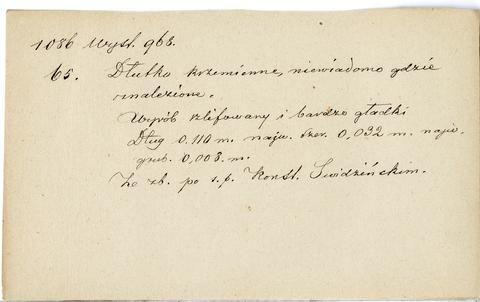 1086 Wyst. 968.
65. Dłutko krzemienne, niewiadomo gdzie
znalezione.
Wyrób szlifowany i bardzo gładki
Dług 0.110 m. najw. szer. 0,032 m. najw.
grub. 0,008. m.
Ze zb. po ś.p. Konst. Świdzińskim.